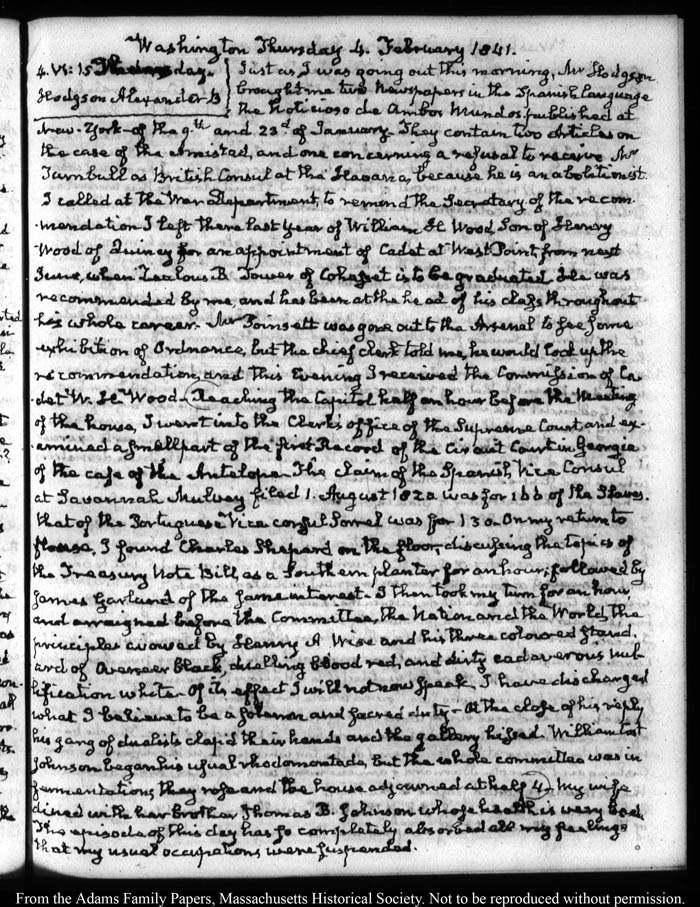 Washington Thursday 4. February 1841.
4. VI:15 Thursday.
Hodgson Alexander B
Just as I was going out this morning, Mr Hodgson
brought me two Newspapers in the Spanish language
the Noticioso de Ambos Mundos published at
New-York of the 9th and 23d of January They contain two Articles on
the case of the Amistad, and one concerning a refusal to receive Mr
Turnbull as British Consul at the Havana, because he is an abolitionist.
I called at the War Department, to remind the Secretary of the recom-
mendation I left there last year of William H Wood, Son of Henry
Wood of Quincy for an appointment of Cadet at West Point, from next
June, when Zealous B Tower of Cohasset is to be graduated He was
recommended by me, and has been at the head of his class throughout
his whole career. Mr Poinsett was gone out to the Arsenal to see some
exhibition of Ordnance, but the chief clerk told me, he would look up the
recommendation, and this Evening I received the Commission of Ca-
det W. H. Wood. Reaching the Capitol half an hour before the meeting
of the house, I went into the Clerk's office of the Supreme Court, and ex-
amined a small part of the first Record of the Circuit Court in Georgia
of the case of the Antelope. The claim of the Spanish, Vice Consul
at Savannah Mulvey filed 1. August 1820 was for 166 of the Slaves.
that of the Portuguese Vice consul Sorrel was for 130. On my return to
House, I found Charles Shepard on the floor, discussing the topics of
the Treasury Note Bill, as a Southern planter for an hour; followed by
James Garland of the same interest. I then took my turn for an hour,
and arraigned before the Committee, the Nation and the World, the
principles avowed by Henry A Wise and his three colored stand-
ard of Overseer black, duelling blood red, and dirty cadaverous nul-
lification white. Of its effect I will not now speak. I have discharged
what I believe to be a solemn and sacred duty. At the close of his reply
his gang of duelists clap'd their hands and the gallery hissed. William Cost
Johnson began his usual rhodomontade, but the whole committee was in
fermentation, they rose and the house adjourned at half 4. My wife
dined with her brother Thomas B. Johnson whose health is very bad.
The episode of this day has so completely absorbed all my feelings
that my usual occupations were suspended.
From the Adams Family Papers, Massachusetts Historical Society. Not to be reproduced without permission.